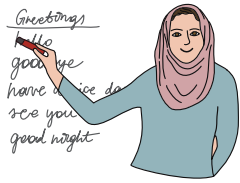 Greetings
hello
goodbye
have a nice da
see you
good night